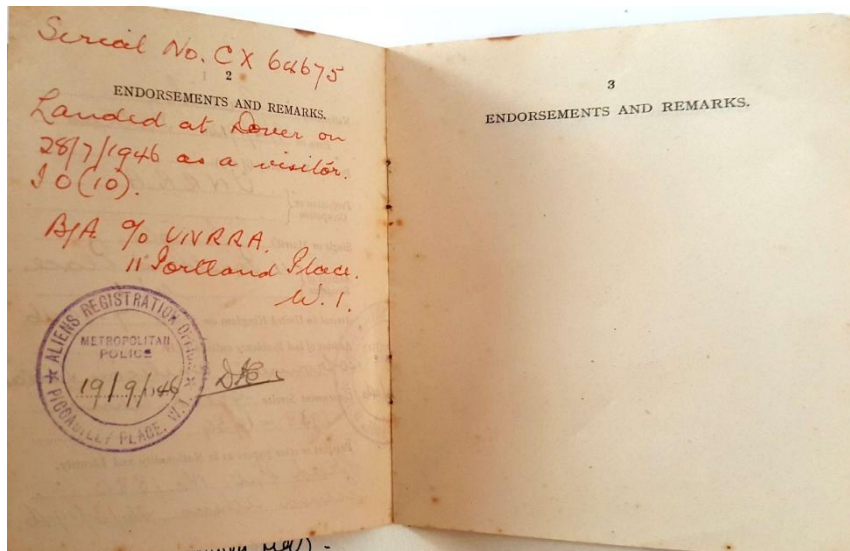 Serial No. CX 64675
2
ENDORSEMENTS AND REMARKS.
Landed at Dover on
28/7/1946 as a visitor.
I O (10).
B/A. c/o UNRRA.
11 Portland Place.
W. 1.
ALIENS REGISTRATION OFFICE
METROPOLITAN
POLICE
19/9/46
PICCADILLY PLACE, W. 1.
3
ENDORSEMENTS AND REMARKS.